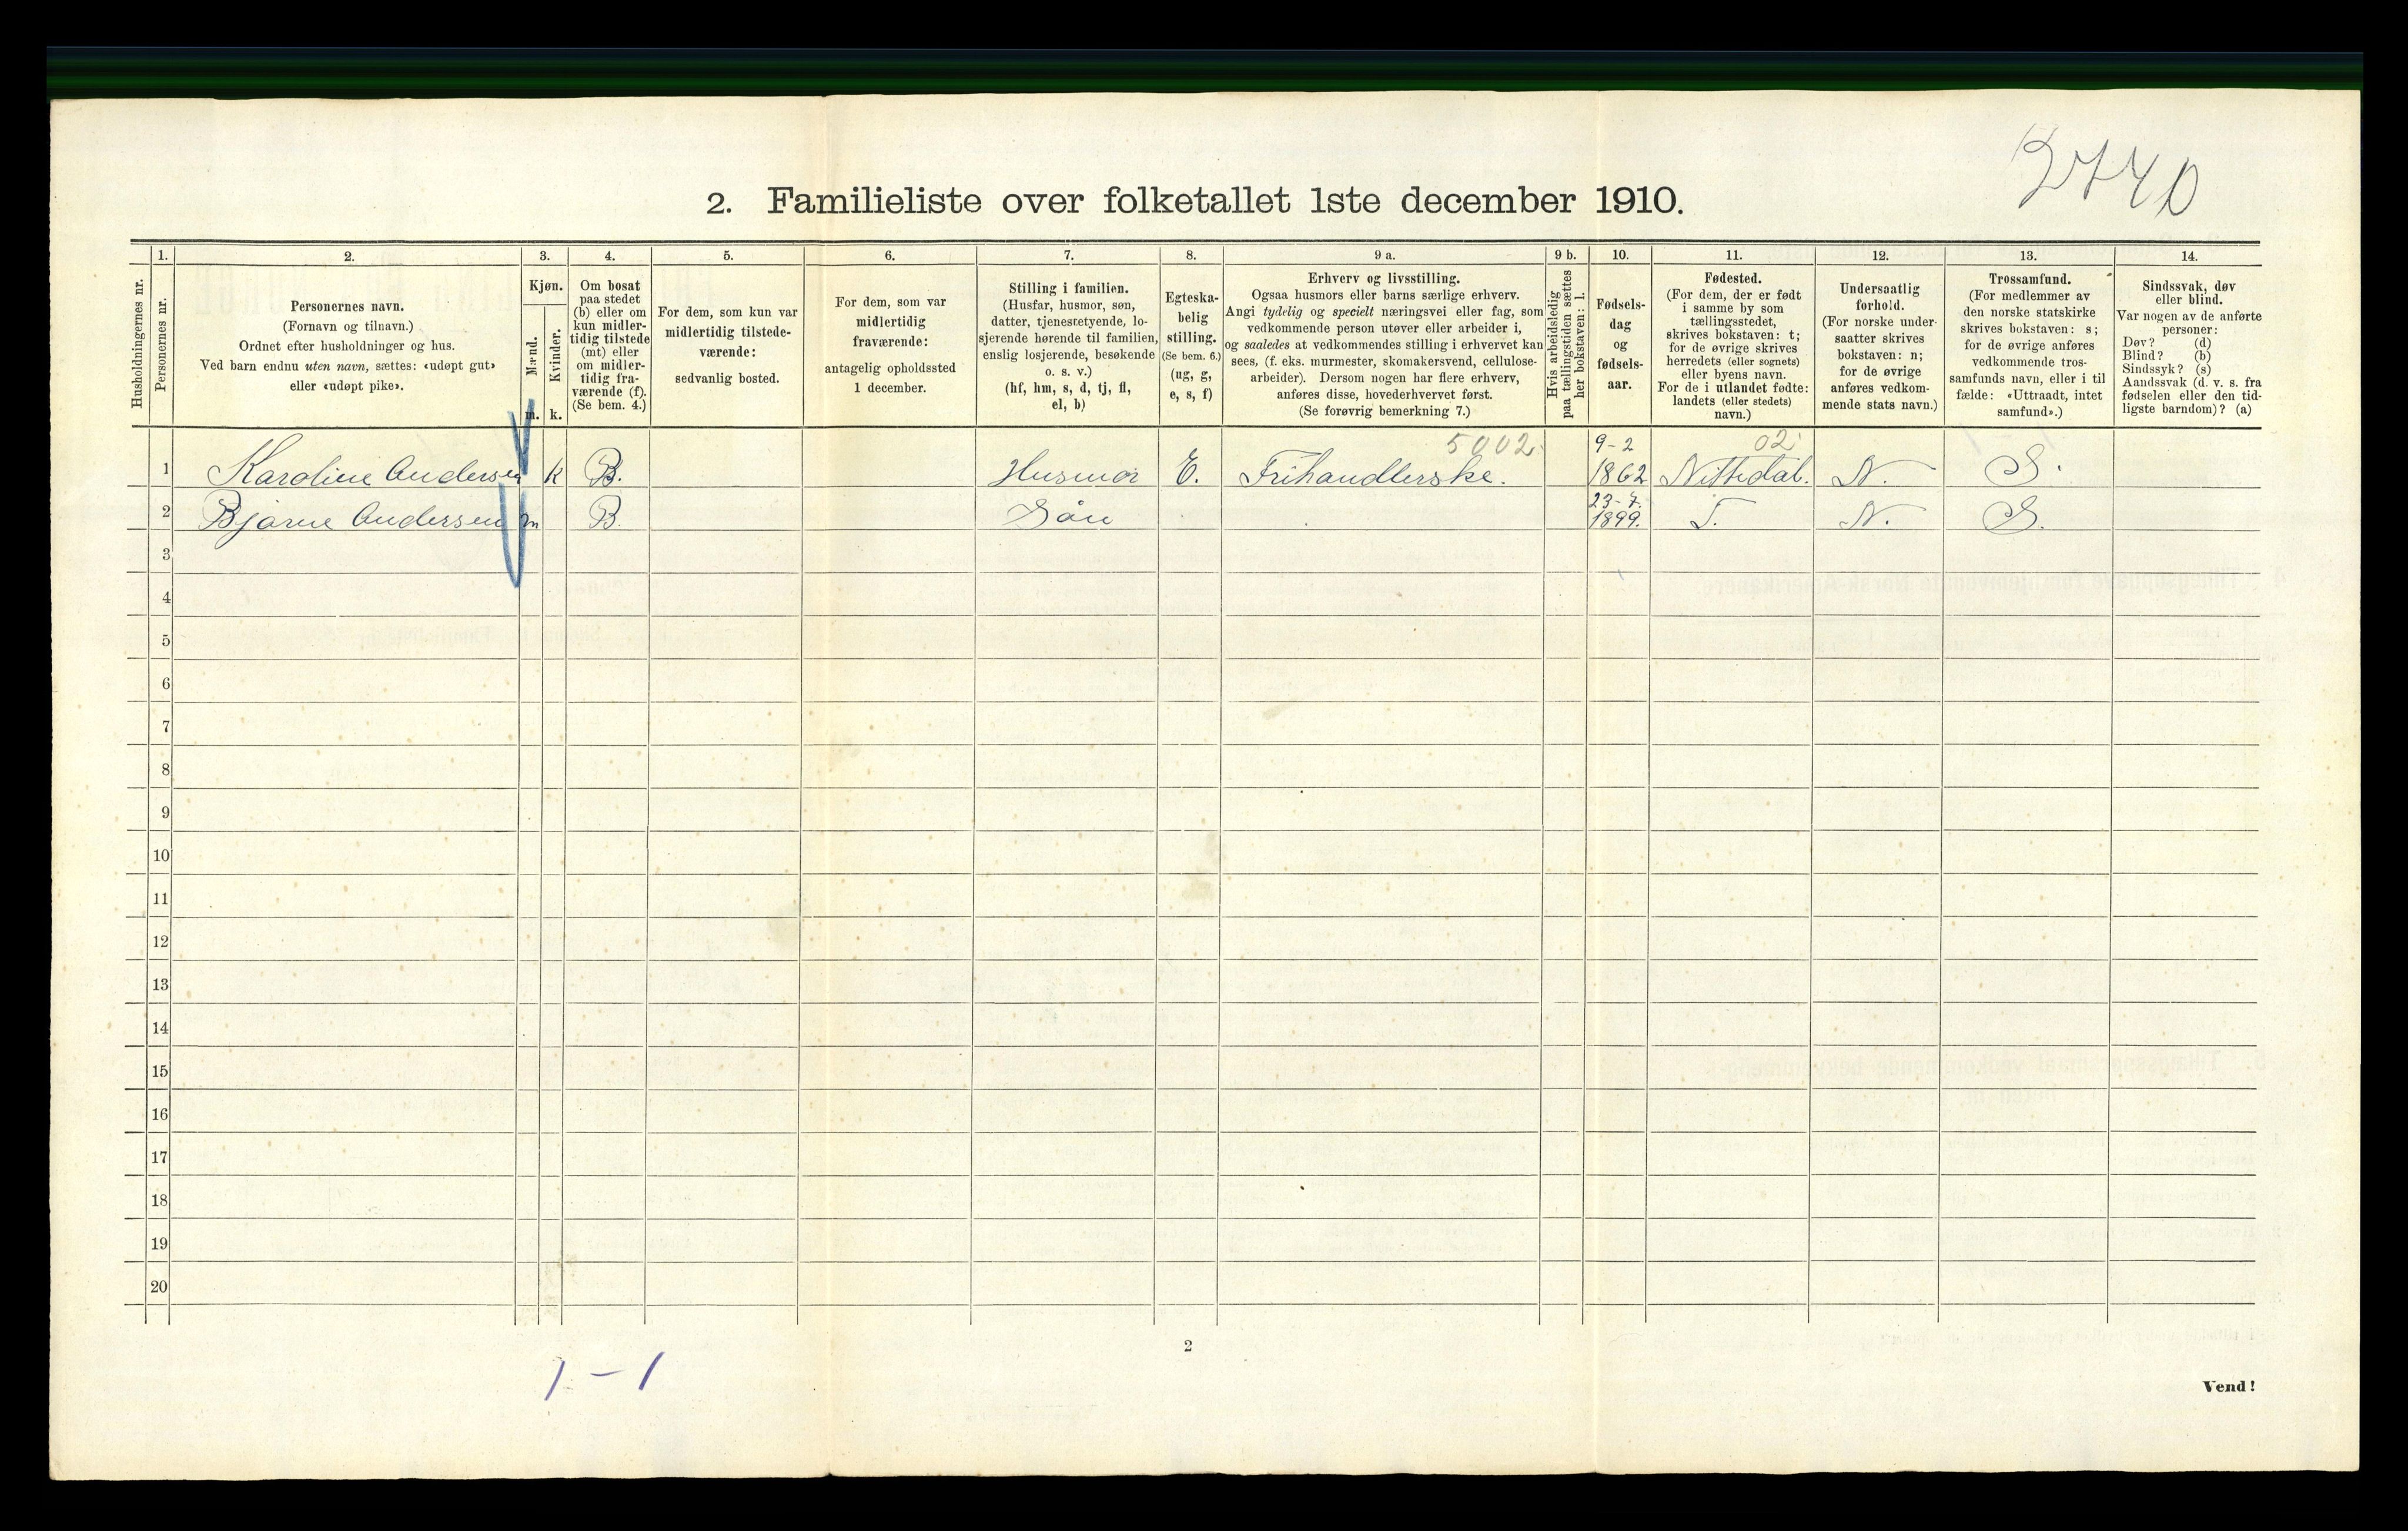 2740
2. Familieliste over folketallet 1ste december 1910.
Husholdningernes nr.
1.
Personernes nr.
2.
Personernes navn.
(Fornavn og tilnavn.)
Ordnet efter husholdninger og hus.
Ved barn endnu uten navn, sættes: «udøpt gut»
eller «udøpt pike».
3.
Kjøn.
Mænd.
Kvinder.
m. k.
4.
Om bosat
paa stedet
(b) eller om
kun midler-
tidig tilstede
(mt) eller
om midler-
tidig fra-
værende (f).
(Se bem. 4.)
5.
For dem, som kun var
midlertidig tilstede-
værende:
sedvanlig bosted.
6.
For dem, som var
midlertidig
fraværende:
antagelig opholdssted
1 december.
7.
Stilling i familien.
(Husfar, husmor, søn,
datter, tjenestetyende, lo-
sjerende hørende til familien,
enslig losjerende, besøkende
o. s. v.)
(hf, hm, s, d, tj, fl,
el, b)
8.
Egteska-
belig
stilling.
(Se bem. 6.)
(ug, g,
e, s, f)
9 a.
Erhverv og livsstilling.
Ogsaa husmors eller barns særlige erhverv.
Angi tydelig og specielt næringsvei eller fag, som
vedkommende person utøver eller arbeider i,
og saaledes at vedkommendes stilling i erhvervet kan
sees, (f. eks. murmester, skomakersvend, cellulose-
arbeider). Dersom nogen har flere erhverv,
anføres disse, hovederhvervet først.
(Se forøvrig bemerkning 7.)
9 b.
Hvis arbeidsledig
paa tællingstiden sættes
her bokstaven: l.
10.
Fødsels-
dag
og
fødsels-
aar.
11.
Fødested.
(For dem, der er født
i samme by som
tællingsstedet,
skrives bokstaven: t;
for de øvrige skrives
herredets (eller sognets)
eller byens navn.
For de i utlandet fødte:
landets (eller stedets)
navn.)
12.
Undersaatlig
forhold.
(For norske under-
saatter skrives
bokstaven: n;
for de øvrige
anføres vedkom-
mende stats navn.)
13.
Trossamfund.
(For medlemmer av
den norske statskirke
skrives bokstaven: s;
for de øvrige anføres
vedkommende tros-
samfunds navn, eller i til
fælde: «Uttraadt, intet
samfund».)
14.
Sindssvak, døv
eller blind.
Var nogen av de anførte
personer:
Døv? (d)
Blind? (b)
Sindssyk? (s)
Aandssvak (d. v. s. fra
fødselen eller den tid-
ligste barndom)? (a)
5002. 9-2 02
1 Karoline Andersen k B. Husmor E. Frihandlerske. 1862 Nittedal. N. S.
23-7.
2 Bjarne Andersen m B. Søn 1899. T. N. S.
3
4
5
6
7
8
9
10
11
12
13
14
15
16
17
18
19
20
2
1 - 1
Vend!